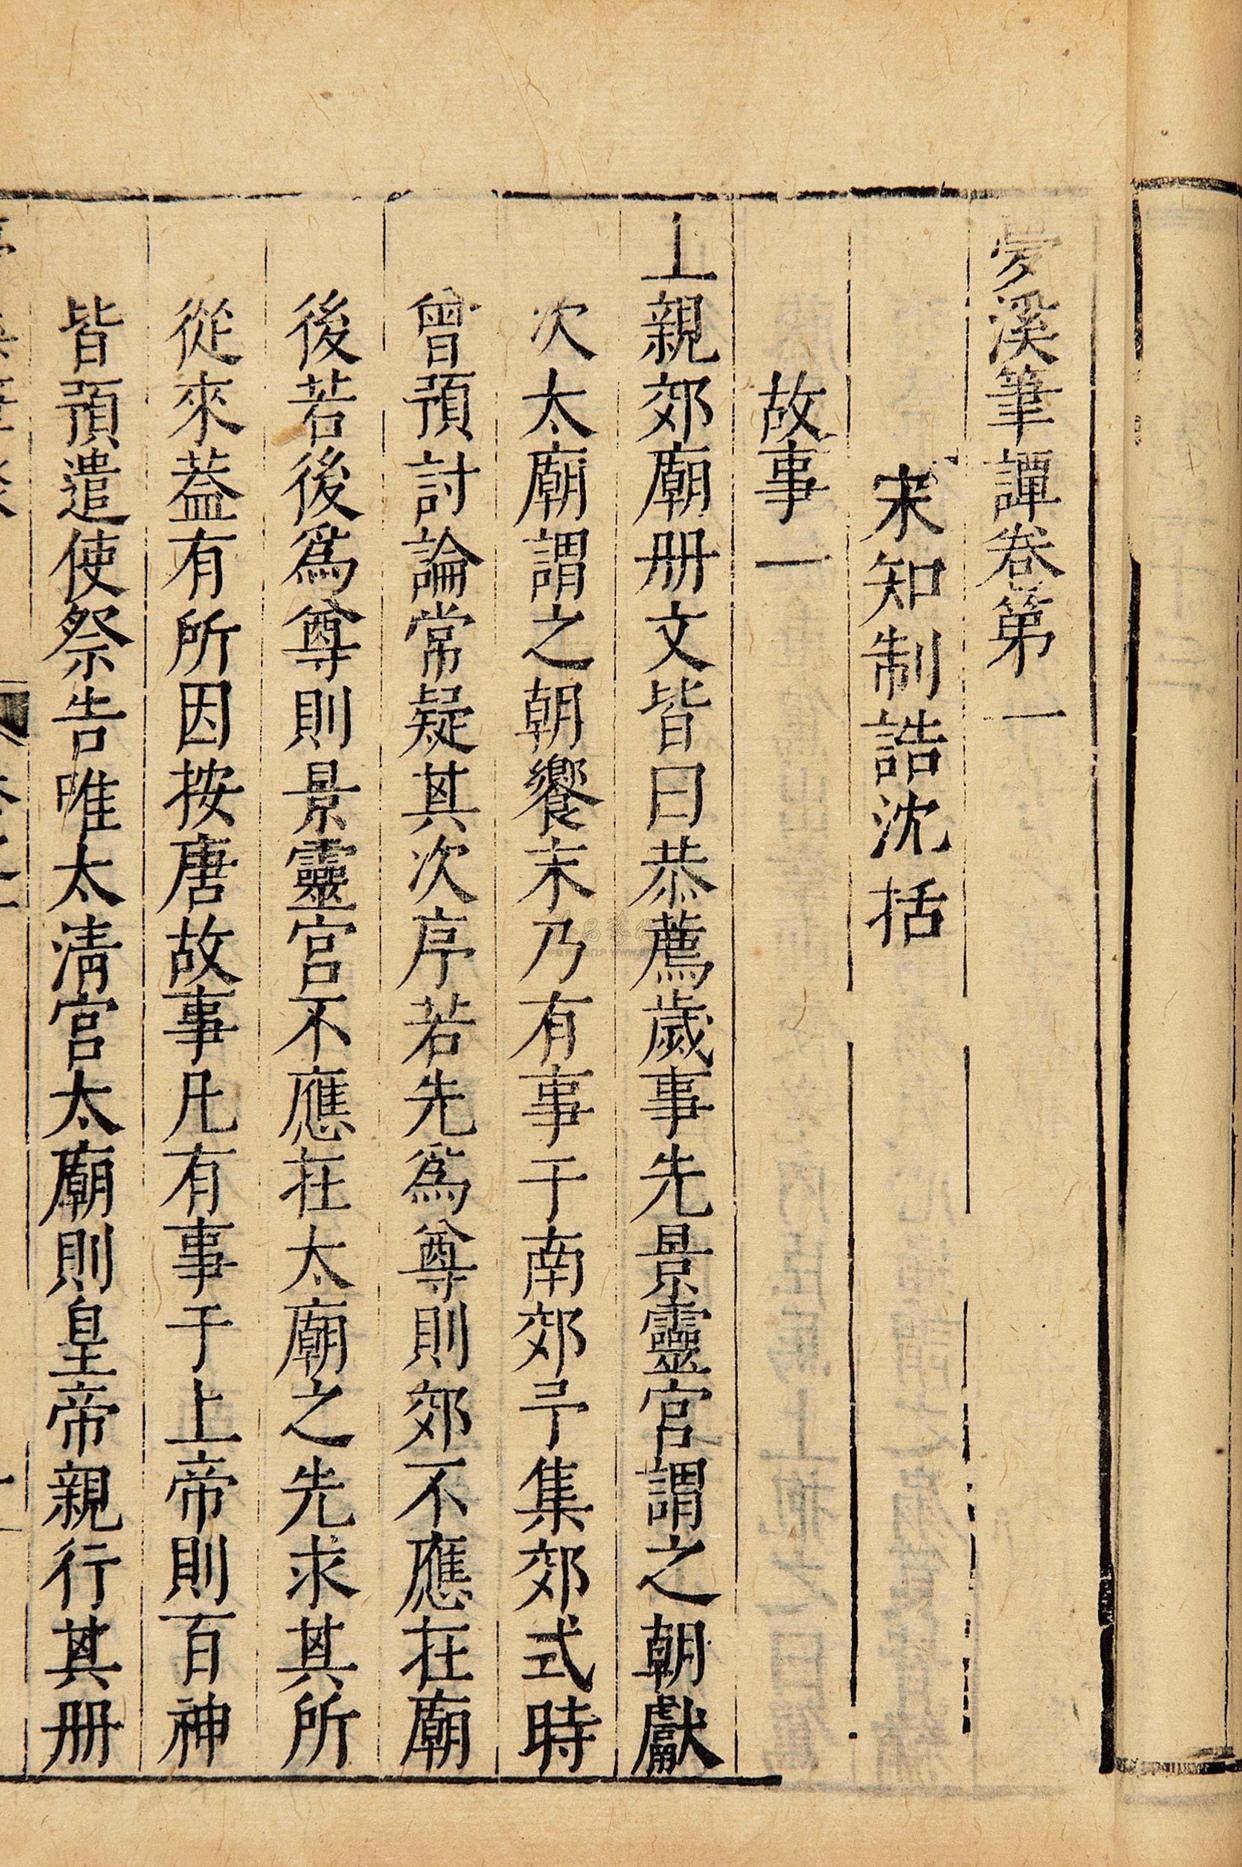 夢溪筆譚卷第一
宋知制誥沈括
故事一
上親郊廟册文皆曰恭薦歲事先景靈宮謂之朝獻
次太廟謂之朝饗末乃有事于南郊予集郊式時
曾預討論常疑其次序若先爲尊則郊不應在廟
後若後爲尊則景靈宮不應在太廟之先求其所
從來蓋有所因按唐故事凡有事于上帝則百神
皆預遣使祭告唯太清宮太廟則皇帝親行其册